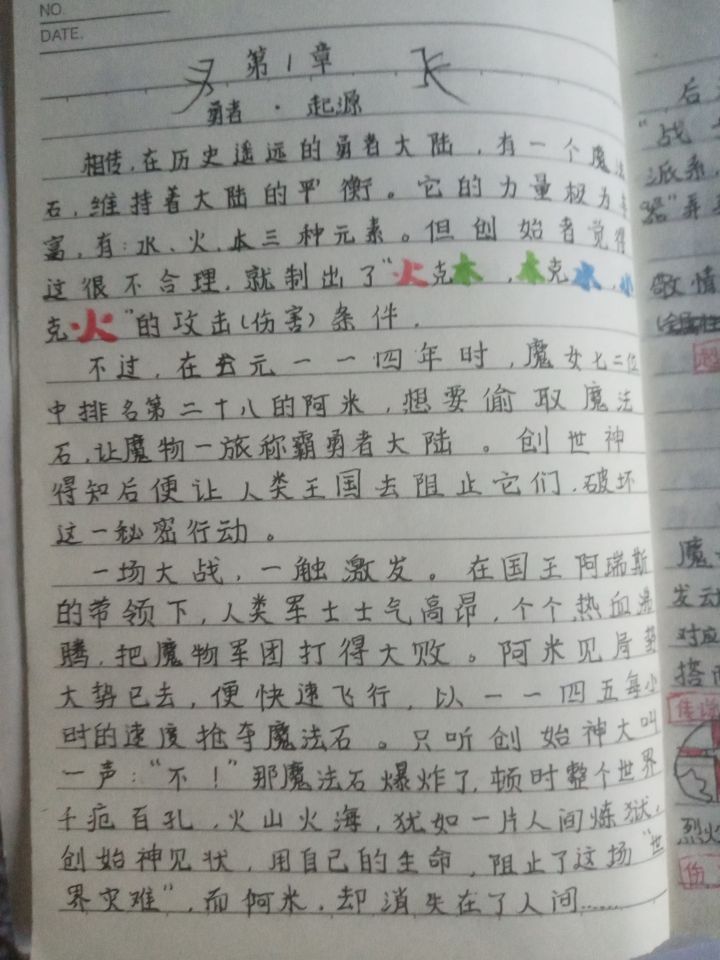 NO.
DATE.
第1章
勇者·起源
相传,在历史遥远的勇者大陆,有一个魔法
石,维持着大陆的平衡。它的力量极为丰
富,有:水、火、木三种元素。但创始者觉得
这很不合理,就制出了“火克木,木克水,水
克火”的攻击(伤害)条件.
不过,在公元一一四年时,魔女七二位
中排名第二十八的阿米,想要偷取魔法
石,让魔物一族称霸勇者大陆。创世神
得知后便让人类王国去阻止它们.破坏
这一秘密行动。
一场大战,一触激发。在国王阿瑞斯
的带领下,人类军士士气高昂,个个热血沸
腾,把魔物军团打得大败。阿米见局势
大势已去,便快速飞行,以一一四五每小
时的速度抢夺魔法石。只听创始神大叫
一声:“不!”那魔法石爆炸了,顿时整个世界
千疮百孔,火山火海,犹如一片人间炼狱,
创始神见状,用自己的生命,阻止了这场“世
界灾难”,而阿米,却消失在了人间……
后
“战
派系,
器”弄
敌情
魔
发云
对应
搭
烈火
伤